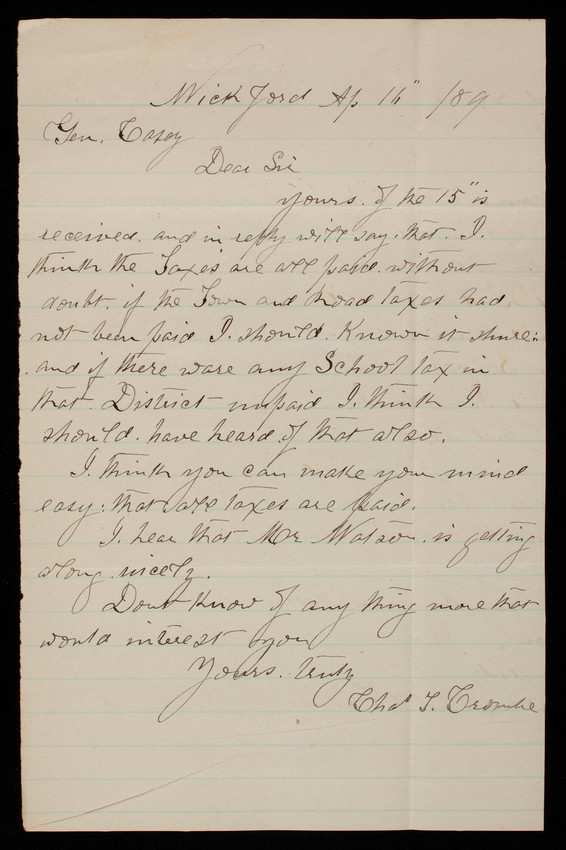 Wickford Ap 16" /89
Gen. Casey
Dear Sir
yours. of the 15" is
received. and in reply will say. that. I.
think the Taxes are all paid. without
doubt. if the Town and Road taxes had
not been paid I. should. Known it shure:
and if there ware any School tax in
that. District unpaid I. think I.
should. have heard of that also.
I. think you can make your mind
easy: that all taxes are paid.
I. hear that Mr Watson. is getting
along. nicely.
Dont Know of any thing more that
would interest you
Yours. truly
Chas T.